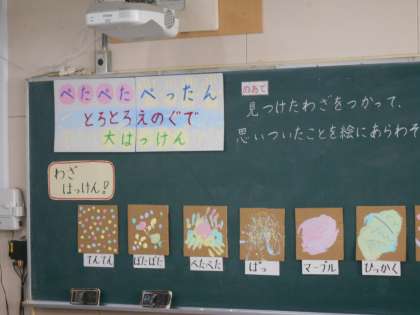 ぺたぺた ぺったん
とろとろえのぐで
大はっけん
めあて
見つけたわざをつかって、
思いついたことを絵にあらわそ
わざ
はっけん!
てんてん
ぽたぽた
ぺたぺた
ぱっ
マーブル
ひっかく